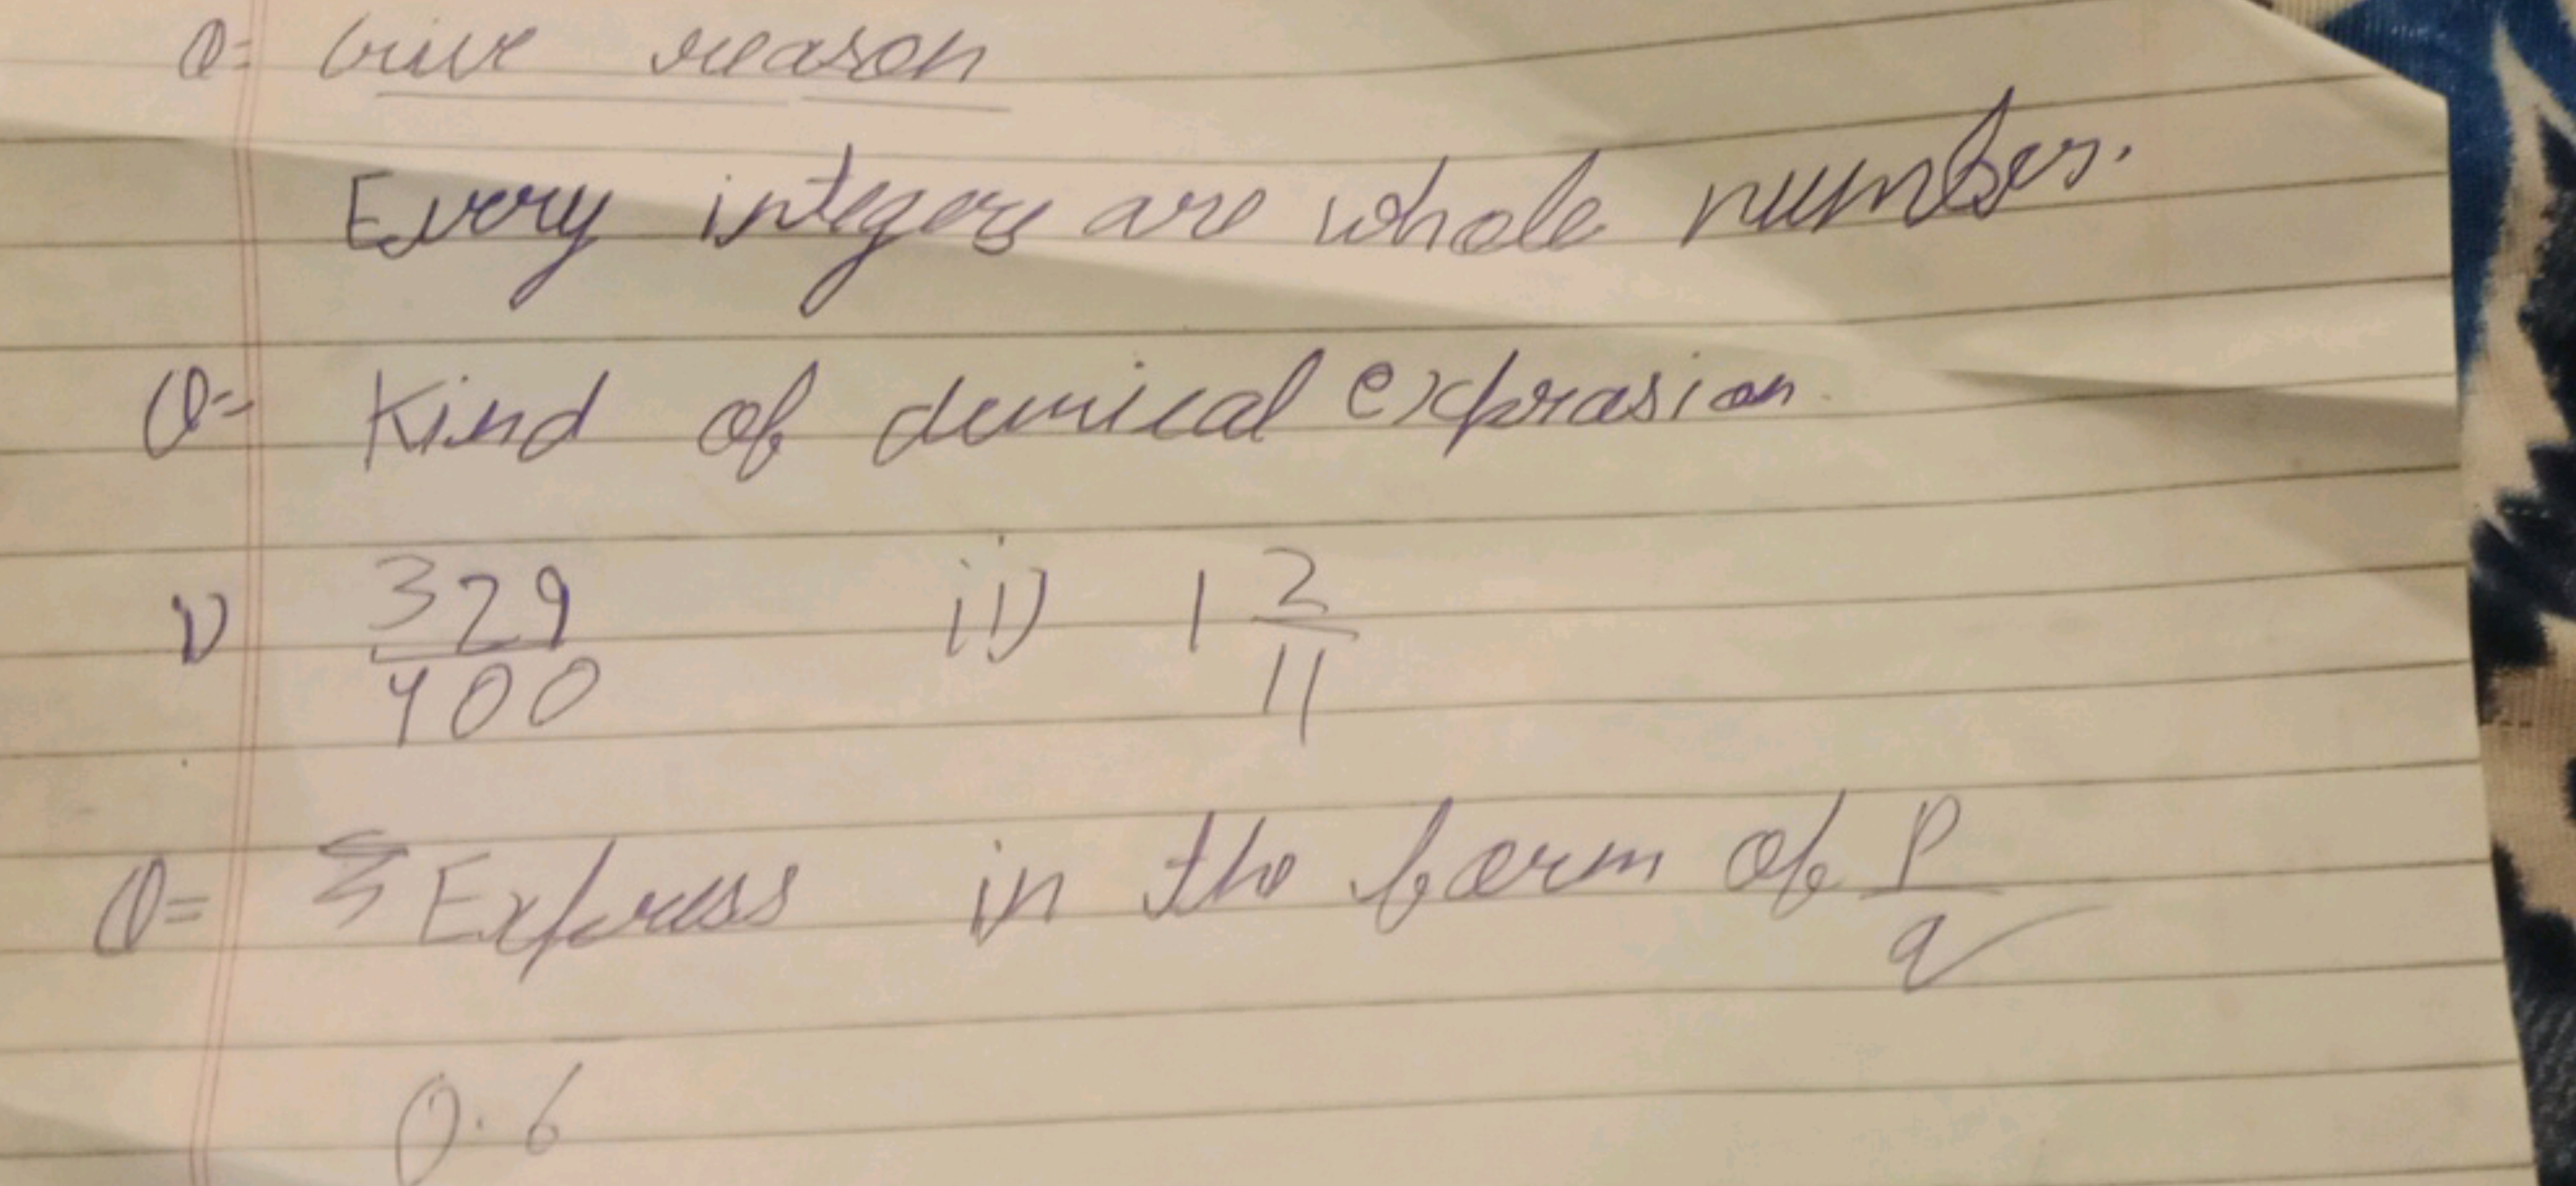 Q= Give reason
Every integers are whole number.
Q= Kind of demical exprasion.
i) 329/400 ii) 1 2/11
Q= Express in the form of P/q
0.6̅